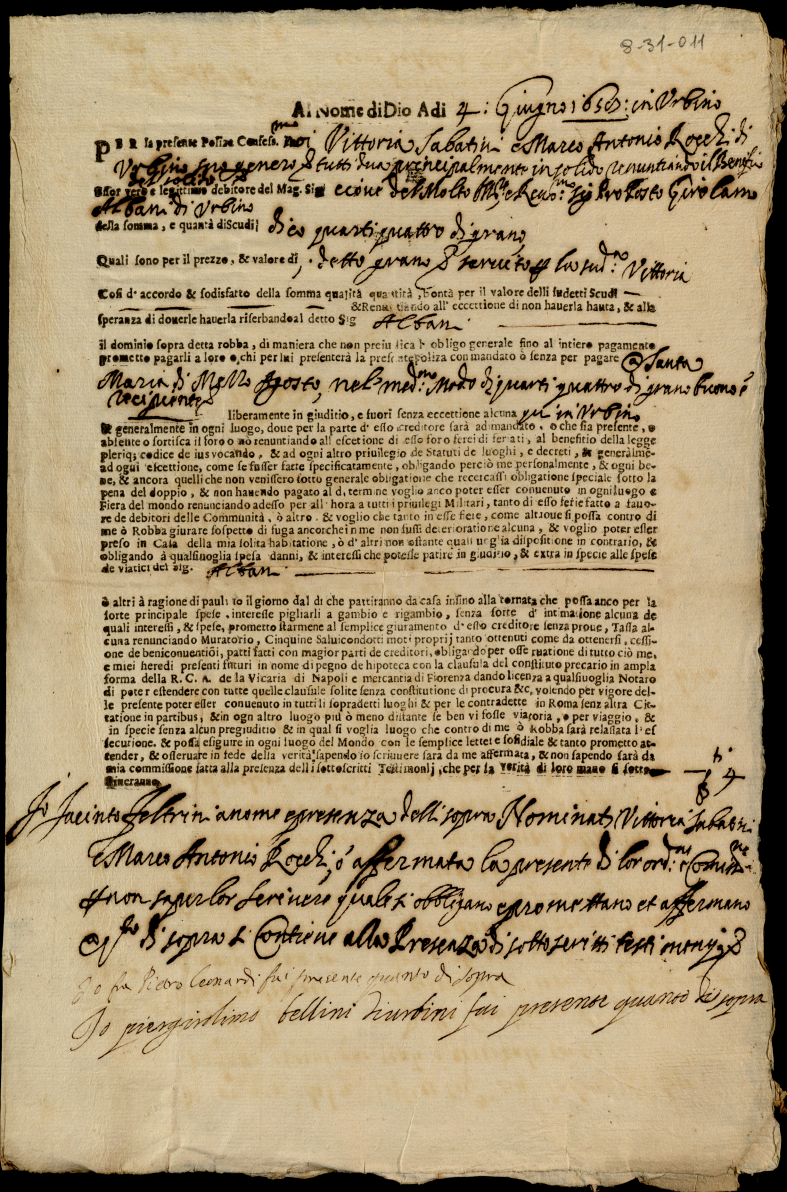 8-31-011
Al Nome di Dio Adi 4: Giugno 1658: in Urbino
PER la presente Poliza Confess. Noi Vittoria Sabatini e Marco Antonio Rocchi di
Urbino suo genero & tutti dua principalmente in solido renuntiando il Benefitio
esser vero e legittimo debitore del Mag. Sig. e cioue del Molto Ill.re e Reu.mo Sig. Proposto Girolamo
Albani di Urbino
della somma, e quantà di Scudi dico quarti quattro di grano
Quali sono per il prezzo, & valore di, detto grano & servito la sud.a Vittoria
Così d'accordo & sodisfatto della somma qualità quantità, bontà per il valore delli sudetti Scudi
& Renuntiando all' eccettione di non hauerla hauta, & alla
speranza di douerle hauerla riserbando al detto Sig Albani
il dominio sopra detta robba, di maniera che non preiudica l' obligo generale fino al intiero pagamento
prometto pagarli a loro o chi per lui presenterà la presente poliza con mandato ò senza per pagare a Santa
Maria di Mezzo Agosto, nel med.mo Modo di quarti quattro di grano buono e
recipiente
liberamente in giuditio, e fuori senza eccettione alcuna qui in Urbino
& generalmente in ogni luogo, doue per la parte d' esso creditore sarà ad mandato, o che sia presente, o
absente o sortisca il foro o nò renuntiando all' escetione di esso foro ferei di feriati, al benefitio della legge
pleriq; codice de ius vocando, & ad ogni altro priuilegio de Statuti de luoghi, e decreti, & generalme-
ad ogni escettione, come se fusser fatte specificatamente, obligando perciò me personalmente, & ogni be-
ne, & ancora quelli che non venissero sotto generale obligatione che recercassi obligatione speciale sotto la
pena del doppio, & non hauendo pagato al d. termine voglio anco poter esser conuenuto in ogni luogo e
Fiera del mondo renunciando adesso per all' hora a tutti i priuilegi Militari, tanto di esso ferie fatto a fauo-
re de debitori delle Communità, ò altro, & voglio che tanto in esse fiere, come altroue si possa contro di
me ò Robba giurare sospetto di fuga ancorche in me non fussi deterioratione alcuna, & voglio poter esser
preso in Casa della mia solita habitatione, ò d' altri non ostante qual si uoglia dispositione in contrario, &
obligando à qualsiuoglia spesa danni, & interessi che potesse patire in giuditio, & extra in specie alle spese
de viatici del Sig. Albani
ò altri à ragione di pauli 10 il giorno dal dì che pattiranno da casa insino alla tornata che possa anco per la
sorte principale spese, interesse pigliarli a gambio e rigambio, senza sorte d' intimatione alcuna de
quali interessi, & spese, prometto starmene al semplice giuramento d' esso creditore senza proue, Tassa al-
cuna renunciando Muratorio, Cinquine Saluicondotti moti proprij tanto ottenuti come da ottenersi, cessi-
one de beni conuentiōi, patti fatti con magior parti de creditori, obligando per osseruatione di tutto ciò me,
e miei heredi presenti futuri in nome di pegno de hipoteca con la clausula del constituto precario in ampla
forma della R. C. A. de la Vicaria di Napoli e mercantia di Fiorenza dando licenza a qualsiuoglia Notaro
di poter estendere con tutte quelle clausule solite senza constitutione di procura &c, volendo per vigore del-
le presente poter esser conuenuto in tutti li sopradetti luoghi & per le contradette in Roma senz altra Ci-
tatione in partibus, & in ogn altro luogo più ò meno distante se ben vi fosse viatoria, o per viaggio, &
in specie senza alcun pregiuditio & in qual si voglia luogo che contro di me ò Robba sarà relassata l'es
secutione. & possa esiguire in ogni luogo del Mondo con le semplice lettere sosidiale & tanto prometto at-
tender, & osseruare in fede della verità sapendo io scriuere sarà da me affermata, & non sapendo sarà da
mia commissione fatta alla presenza delli sottoscritti Testimonij, che per la verità di loro mano si sotto
scriueranno
4
Io Jacinto Feltrini a nome e presenza delli sopra Nominati Vittoria Sabatini
e Marco Antonio Rocchi, ò affermata la presente di lor ord.ne e Comis.ne
non saper lor scrivere quale si obbligano e promettano et affermano
di sopra si Contiene alla Presenza di sotto scritti testimonij
Io fra Pietro Leonardi fui presente quanto di sopra
Io piergirolimo bellini d'urbini fui presente quanto di sopra